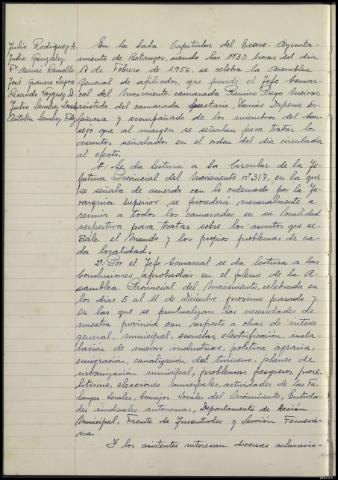 Julio Rodríguez A.
Julio González
José
Ricardo Vázquez
Julio Sánchez
Sánchez
En la Sala Capitular del Excmo. Ayunta-
miento de Betanzos, siendo las 19'30 horas del día
17 de Febrero de 1956, se celebra la Asamblea
General de afiliados, que preside el Jefe Comar-
cal del Movimiento camarada
asistido del camarada Secretario, Tomás Dapena Es-
pinosa y acompañado de los miembros del Con-
sejo que al margen se señalan para tratar los
asuntos señalados en el orden del día circulada
al efecto.
1º. Se da lectura a la Circular de la Je-
fatura Provincial del Movimiento nº 317, en la que
se señala de acuerdo con lo ordenado por la Je-
rarquía Superior se procederá mensualmente a
reunir a todos los camaradas en su localidad
respectiva para tratar sobre los asuntos que se-
ñale el Mando y los propios problemas de ca-
da localidad.
2º. Por el Jefe Comarcal se da lectura a las
Conclusiones, aprobadas en el pleno de la A-
samblea Provincial del Movimiento, celebrada en
los días 5 al 11 de Diciembre próximo pasado y
en las que se puntualizan las necesidades de
nuestra provincia con respecto a obras de interés
general, municipal, escuelas, electrificación, insta-
lación de nuevas industrias, política agraria,
emigración, canalización del turismo, planes de
urbanización municipal, problemas pesqueros, prose-
litismo, elecciones municipales, actividades de las Fa-
langes Locales, Consejos Locales del Movimiento, Entida-
des sindicales autónomas, Departamento de Acción
Municipal, Frente de Juventudes y Sección Femeni-
na.
Y los asistentes interesan diversas aclaracio-